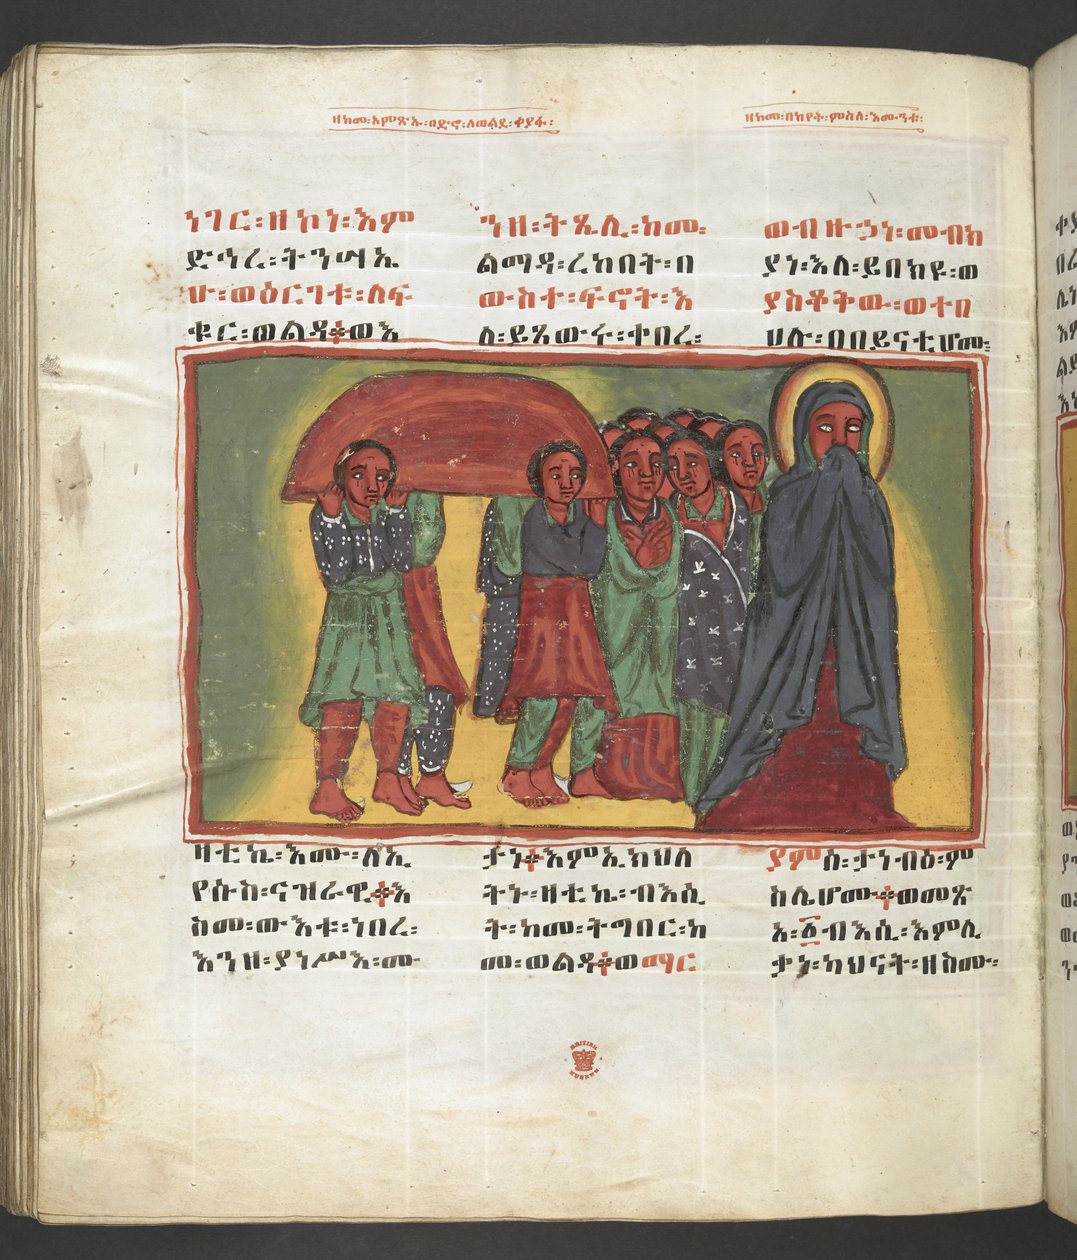 ዘከመ፡አምጽኡ፡በድኖ፡ለወልደ፡ቀያፋ፡
ዘከመ፡በከየት፡ምስለ፡እሙንቱ፡
ነገር፡ዘኮነ፡እም
ድኅረ፡ትንሣኤ
ሁ፡ወዕርገቱ፡ለፍ
ቁር፡ወልዳ፨ወእ
ንዘ፡ትጼሊ፡ከመ፡
ልማዳ፡ረከበት፡በ
ውስተ፡ፍኖት፡እ
ለ፡ይጸውሩ፡ቀበረ፡
ወብዙኃነ፡መብክ
ያነ፡እለ፡ይበክዩ፡ወ
ያስቆቅው፡ወተበ
ሀሉ፡በበይናቲሆሙ፡
ዛቲኬ፡እሙ፡ለኢ
የሱስ፡ናዝራዊ፨እ
ስመ፡ውእቱ፡ነበረ፡
እንዘ፡ያነሥእ፡ሙ
ታነ፨እምኢክህለ
ትኑ፡ዛቲኬ፡ብእሲ
ት፡ከመ፡ትግበር፡ከ
መ፡ወልዳ፨ወማር
ያምሰ፡ታነብዕ፡ም
ስሌሆሙ፨ወመጽ
አ፡፩ብእሲ፡እምሊ
ቃነ፡ካህናት፡ዘስሙ፡
BRITISH
MUSEUM